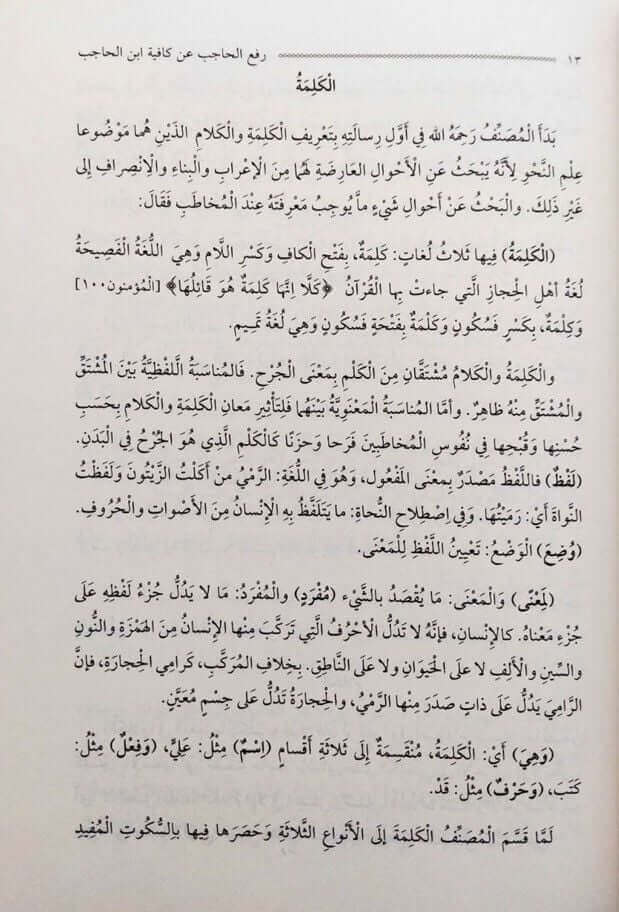 ١٣ رفع الحاجب عن كافية ابن الحاجب
الْكَلِمَةُ
بَدَأَ الْمُصَنِّفُ رَحِمَهُ الله فِي أَوَّلِ رِسالَتِهِ بِتَعْرِيفِ الْكَلِمَةِ والْكَلامِ الذَيْنِ هُما مَوْضُوعا
عِلْمِ النَّحْوِ لِأَنَّهُ يَبْحَثُ عَنِ الْأَحْوالِ العارِضَةِ لَهُما مِنَ الْإعْرابِ والْبِناءِ والْإنْصِرافِ إلى
غَيْرِ ذَلِكَ. والْبَحْثُ عَنْ أحْوالِ شَيْءٍ مِمَّا يُوجِبُ مَعْرِفَتَهُ عِنْدَ الْمُخاطَبِ فَقَالَ:
(الْكَلِمَةُ) فِيها ثَلاثُ لُغاتٍ: كَلِمَةٌ، بِفَتْحِ الْكافِ وَكَسْرِ اللَّامِ وَهِيَ اللُّغَةُ الْفَصِيحَةُ
لُغَةُ أهْلِ الْحِجازِ الَّتي جاءتْ بِها الْقُرْآنُ ﴿كَلَّا اِنَّهَا كَلِمَةٌ هُوَ قَائِلُهَا﴾ [الْمُؤمنون١٠٠]
وَكِلْمَةٌ، بِكَسْرٍ فَسُكُونٍ وَكَلْمَةٌ بِفَتْحَةٍ فَسُكُونٍ وَهِيَ لُغَةُ تَمِيمٍ.
والْكَلِمَةُ والْكَلامُ مُشْتَقَّانِ مِنَ الْكَلْمِ بِمَعْنَى الْجُرْحِ. فَالمُناسَبَةُ اللَّفْظِيَّةُ بَيْنَ الْمُشْتَقِّ
والْمُشْتَقِّ مِنْهُ ظاهِرٌ. وأمَّا المُناسَبَةُ الْمَعْنَوِيَّةُ بَيْنَهُما فَلِتَأثِيرِ مَعانِ الْكَلِمَةِ والْكَلامِ بِحَسَبِ
حُسْنِها وَقُبْحِها فِي نُفُوسِ الْمُخاطَبِينَ فَرَحا وَحزَنًا كَالْكَلْمِ الَّذِي هُوَ الْجُرْحُ فِي الْبَدَنِ.
(لَفْظٌ) فَاللَّفْظُ مَصْدَرٌ بِمعْنَى المَفْعُول، وَهُوَ فِي اللُّغَةِ: الرَّمْيُ مِنْ أكَلْتُ الزَّيْتُونَ وَلَفَظْتُ
النَّواةَ أيْ: رَمَيْتُهَا. وَفِي اِصْطِلاحِ النُّحاةِ: ما يَتَلَفَّظُ بِهِ الْإنْسانُ مِنَ الأصْواتِ والْحُرُوفِ.
(وُضِعَ) الْوَضْعُ: تَعْيِينُ اللَّفْظِ لِلْمَعْنَى.
(لِمَعْنًى) وَالْمَعْنَى: مَا يُقْصَدُ بالشَّيْء (مُفْرَدٍ) والْمُفْرَدُ: مَا لا يَدُلُّ جُزْءُ لَفْظِهِ عَلَى
جُزْءِ مَعْناهُ. كالإنْسانِ، فَإنَّهُ لا تَدُلُّ الْأحْرُفُ الَّتِي تَرَكَّبَ مِنْها الإنْسانُ مِنَ الهَمْزَةِ والنُّونِ
والسِّينِ والْأَلِفِ لا على الْحَيَوانِ ولا عَلَى النَّاطِقِ. بِخِلافِ الْمُرَكَّبِ، كَرامِي الْحِجارَةِ، فإنَّ
الرَّامِيَ يَدُلُّ عَلَى ذاتٍ صَدَرَ مِنْها الرَّمْيُ، والْحِجارَةُ تَدُلُّ عَلى جِسْمٍ مُعَيَّنٍ.
(وَهِيَ) أَيْ: الْكَلِمَةُ، مُنْقَسِمَةٌ إلَى ثَلاثَةِ أقْسامٍ (اِسْمٌ) مِثْلُ: عَلِيٌّ، (وَفِعْلٌ) مِثْلُ:
كَتَبَ، (وَحَرْفٌ) مِثْلُ: قَدْ.
لَمَّا قَسَّمَ الْمُصَنِّفُ الْكَلِمَةَ إلَى الْأنْواعِ الثَّلاثَةِ وَحَصَرَها فِيها بِالسُّكُوتِ الْمُفِيدِ